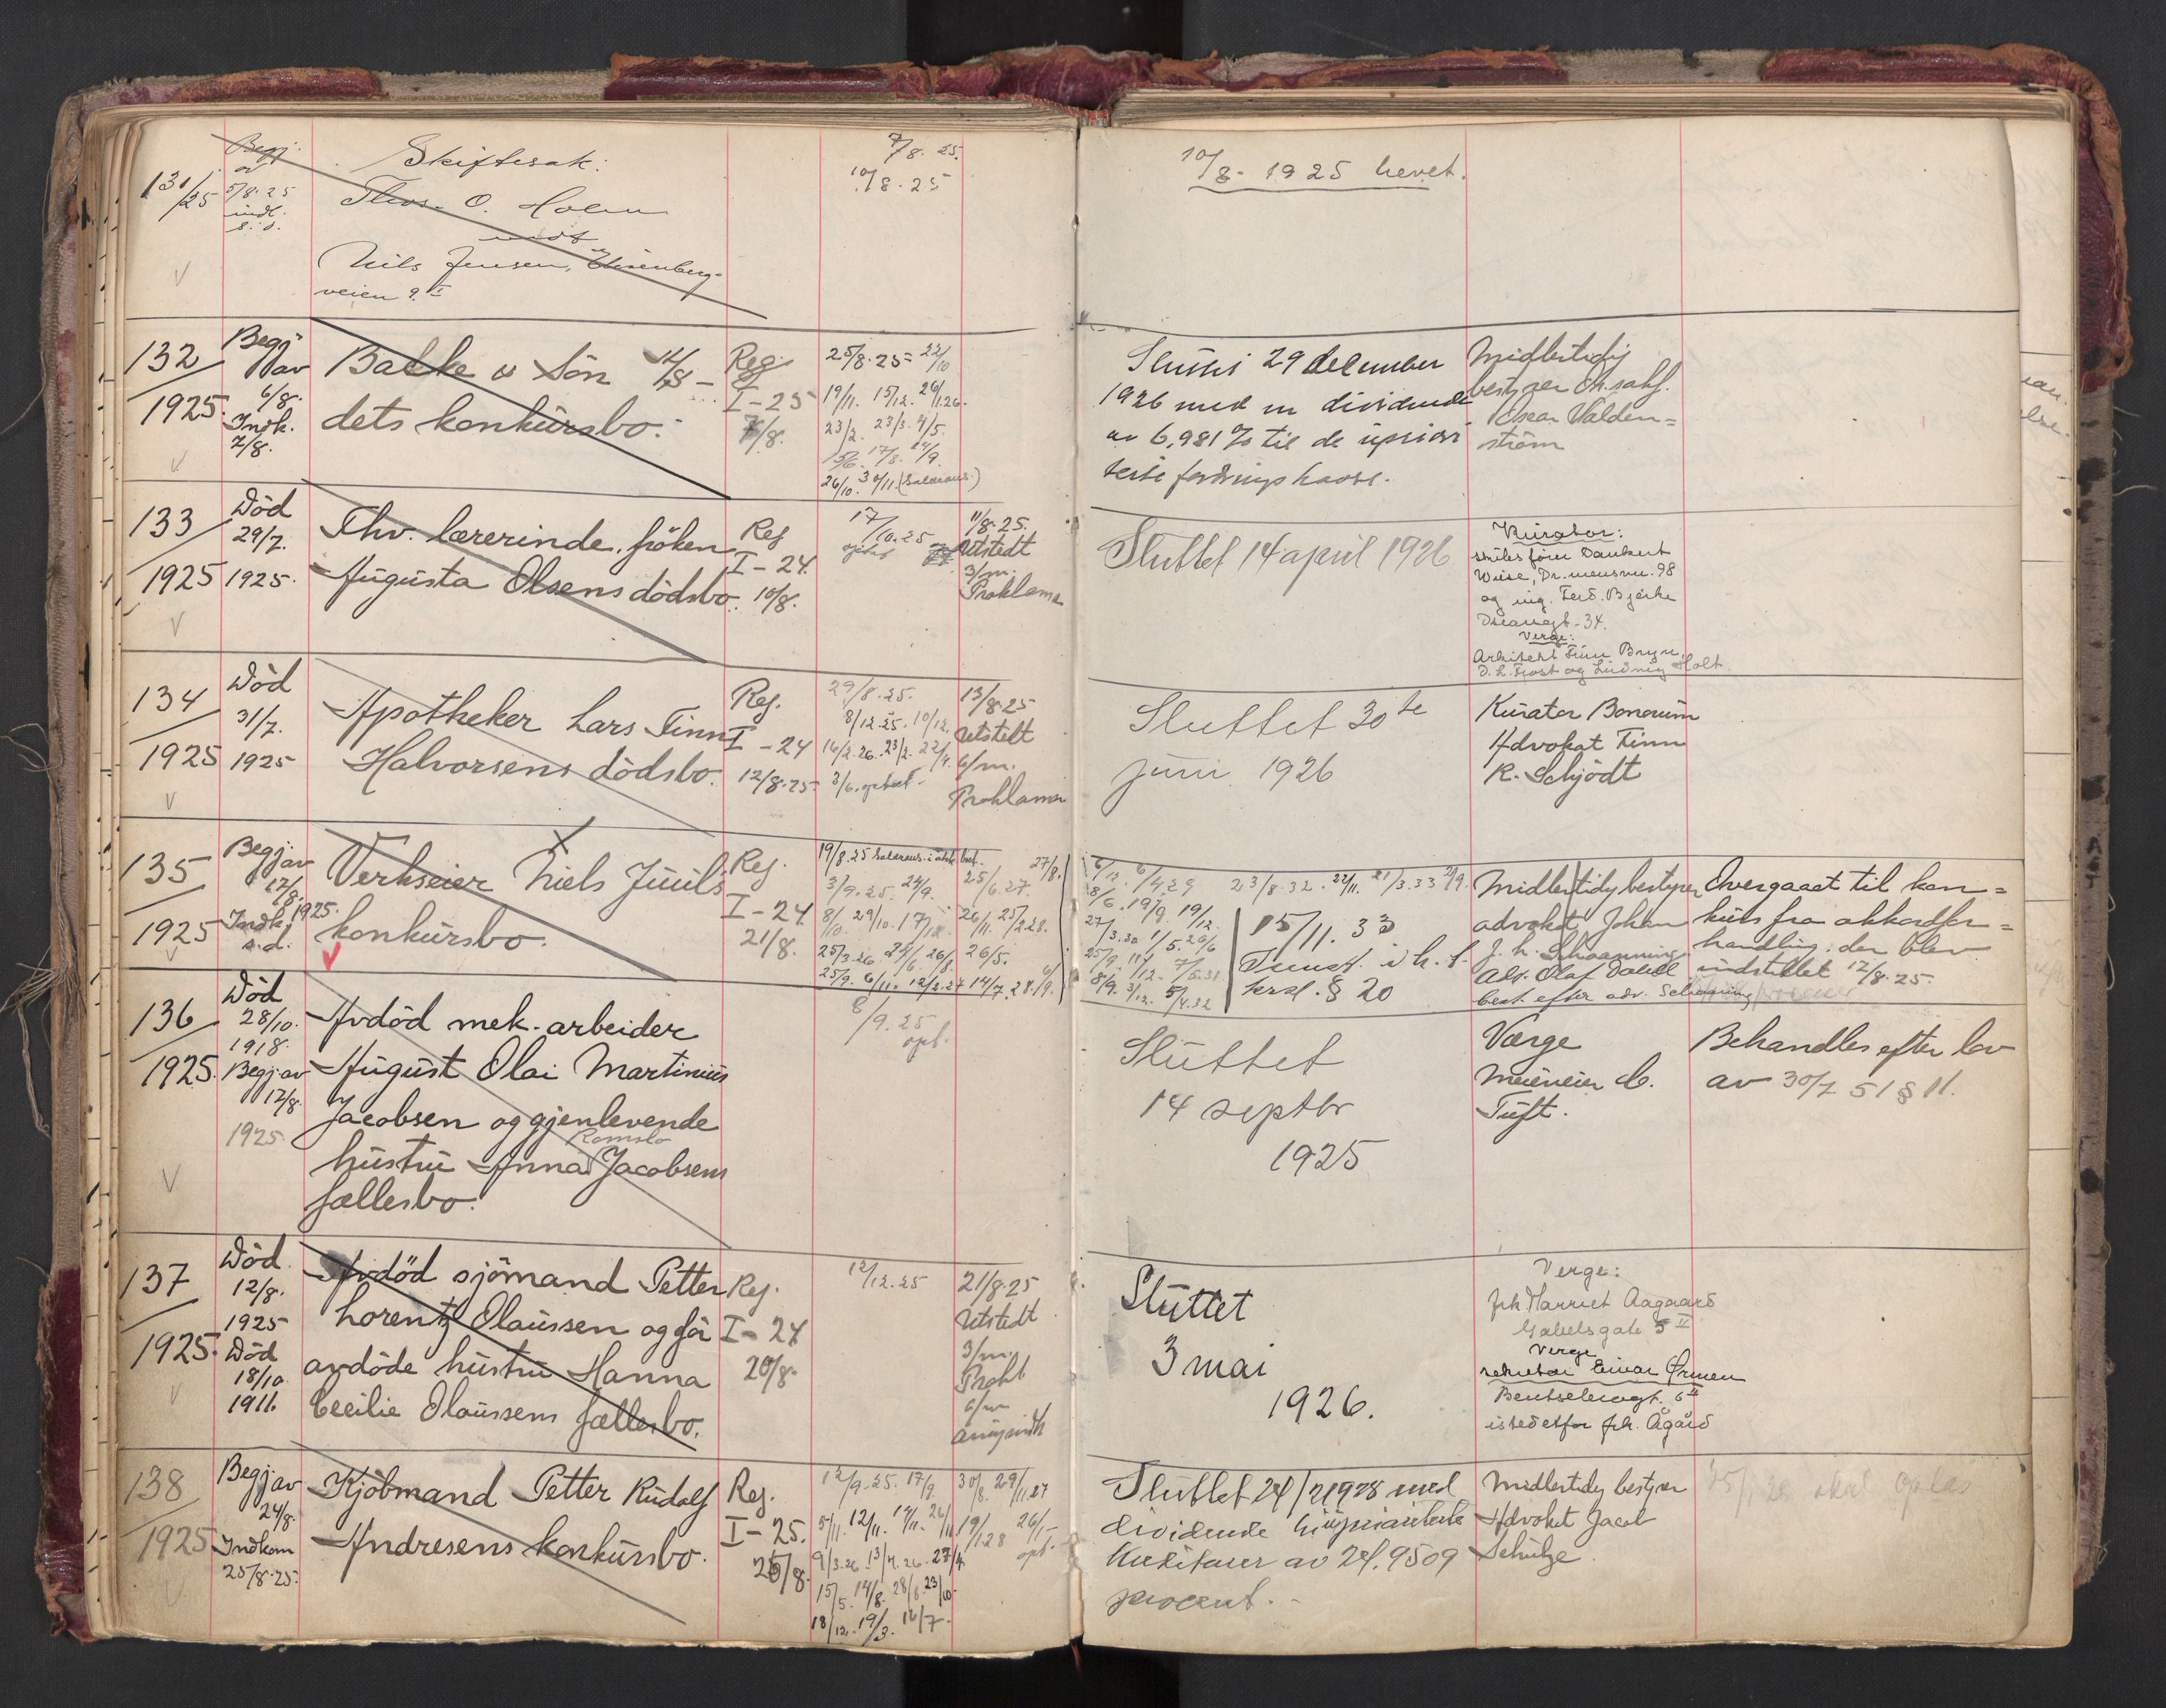 131/25
Begj. av 5/8.25 indl. s.d.
Skiftesak:
Thos. O. Holm
mot
Nils Jensen,
veien 9 I
7/8.25.
10/8.25
10/8. 1925 hevet.
132
1925
Begj av
6/8.
Indk.
7/8.
Balke & Søn
dets konkursbo.
Reg.
I-25
7/8.
25/8.25 22/10
19/11. 15/12. 26/1.26.
23/2. 23/3. 4/5.
15/6. 17/8. 14/9.
26/10. 30/11 (Salærans.)
Sluttet 29 december
1926 med en dividende
av 6,981 % til de uprior
terte fordringshavere.
Midlertidig
bestyrer
Oscar Walden=
strøm
133
1925
Död
29/7.
1925.
Fhv. lærerinde, fröken
Augusta Olsens dödsbo.
Reg
I-24.
10/8.
17/10.25
11/8.25.
Utstedt
3/m.
Proklama
Sluttet 14 april 1926
Kurator:
Dankert
Wiese, Dr. 98
og ing. Ferd. Bjerke
34.
Verge:
Arkitekt Finn Bryn,
O. L. Frost og Ludvig Holt
134
1925
Död
31/7.
1925
Apotheker Lars Finn
Halvorsens dödsbo.
Reg.
I-24
12/8.25
29/8.25.
8/12.25. 10/12.
16/2.26. 23/2. 22/4.
3/6. optat.
13/8.25
Utstedt
6/m.
Proklama
Sluttet 30te
juni 1926
Kurator Bonorum
Advokat Finn
R. Schjödt
135
1925
Begj. av
17/8.
1925.
Indk.
s.d.
Verkseier Niels Juuls
konkursbo.
Reg.
I-24.
21/8.
19/8.25
3/9.25. 24/9.
25/6.27. 27/8.
8/10. 29/10. 17/12.
26/11. 25/2.28.
25/3.26
26/5.
25/9. 6/11. 12/2.27 14/7. 28/9.
6/12. 6/4.29 23/8.32. 22/11. 21/3.33
8/6. 19/9. 19/12.
27/3.30 1/5. 20/6
8/9. 3/12. 5/4.32
15/11. 33
i h. t.
krsl. § 20
Midlertidig bestyrer
advokat Johan
J. L. Schaanning
Adv. Olaf Dalell
best. efter adv. Schaanning
Overgaaet til kon=
kurs fra akkordfor=
handling, der blev
indstillet 17/8.25.
136
1925.
Död
28/10.
1918.
Begj. av
17/8.
1925
Avdöd mek. arbeider
August Olai Martinius
Jacobsen og gjenlevende
Romslo
hustru Anna Jacobsens
fællesbo.
8/9.25
opt.
Sluttet
14 septbr
1925
Værge
Meieieier C.
Tuft.
Behandles efter lov
av 30/7 51 § 11.
137
1925.
Död
12/8.
1925
Död
18/10
1911.
Avdöd sjömand Petter
Lorentz Olaussen og før
avdöde hustru Hanna
Cecilie Olaussens fællesbo.
Reg.
I-24
20/8.
12/12.25
21/8.25
Utstedt
3/m.
Prokl
6/m
Sluttet
3 mai
1926.
Verge:
frk Harriet Aagaard
Gabelsgate 5 II
Verge
Einar Ormen
6 II
istedetfor frk. Ågård
138
1925
Begj av
24/8.
Indkom
25/8.25.
Kjöbmand Petter Rudolf
Andresens konkursbo.
Reg.
I-25.
26/8.
12/9.25. 17/9. 30/8. 29/11.27
5/11. 12/11. 17/11. 26/11 19/1.28
9/3.26 13/4.26. 27/4.
15/5. 14/8. 28/8. 23/10.
18/12. 19/3. 16/7.
Sluttet 24/2 1928 med
dividende til upriorterte
kreditorer av 24,9509
procent.
Midlertidig bestyrer
Advokat Jacob
Schulze.